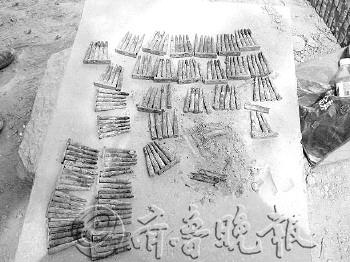 齐鲁晚报